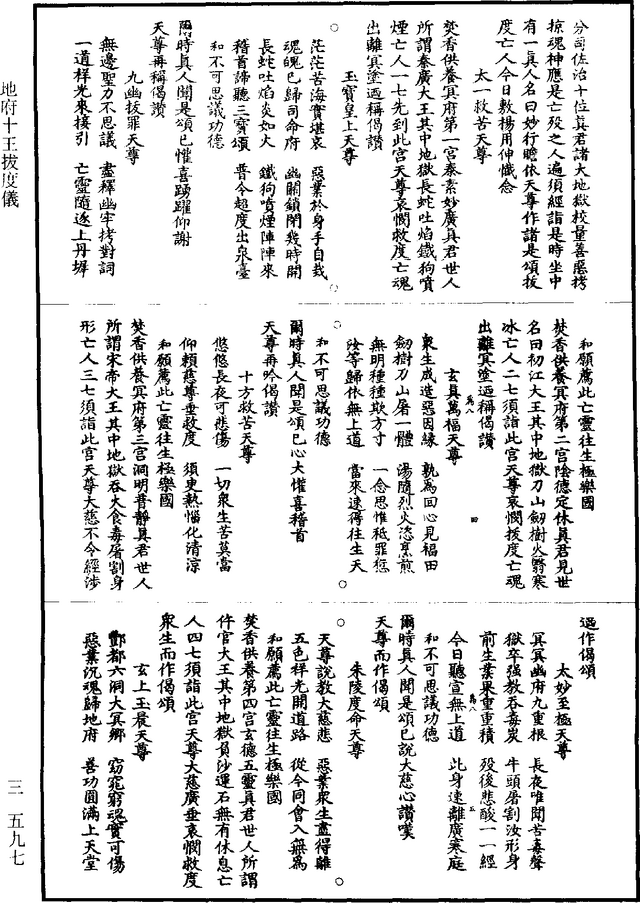 地府十王拔度儀
三—五九七
分司佐治十位真君諸大地獄校量善惡拷
掠魂神應是亡歿之人遍須經詣是時坐中
有一真人名曰妙行瞻依天尊作諸是頌拔
度亡人今日敷揚用伸懺念
太一救苦天尊
焚香供養冥府第一宮泰素妙廣真君世人
所謂秦廣大王其中地獄長蛇吐焰鐵狗噴
煙亡人一七先到此宮天尊哀憫救度亡魂
出離冥塗迺稱偈讚
玉寶皇上天尊
茫茫苦海實堪哀　惡業於身手自栽
魂魄已歸司命府　幽關鎖閉幾時開
長蛇吐焰炎如火　鐵狗噴煙陣陣來
稽首諦聽三寶頌　普令超度出泉臺
和不可思議功德
爾時真人聞是頌已懽喜踴躍仰謝
天尊再稱偈讚
九幽拔罪天尊
無邊聖力不思議　盡釋幽牢拷對詞
一道祥光來接引　亡靈隨逐上丹墀
和願薦此亡靈往生極樂國
焚香供養冥府第二宮陰德定休真君見世
名曰初江大王其中地獄刀山劒樹火翳寒
冰亡人二七須詣此宮天尊哀憫拔度亡魂
出離冥塗迺稱偈讚
玄真萬福天尊
衆生咸造惡因緣　孰為回心見福田
劒樹刀山屠一體　湯隨烈火恣烹煎
無明種種欺方寸　一念思惟秪罪愆
汝等歸依無上道　當來速得往生天
和不可思議功德
爾時真人聞是頌已心大懽喜稽首
天尊再吟偈讚
十方救苦天尊
悠悠長夜可悲傷　一切衆生苦莫當
仰賴慈尊垂救度　須臾熱惱化清涼
和願薦此亡靈往生極樂國
焚香供養冥府第三宮洞明普靜真君世人
所謂宋帝大王其中地獄吞火食毒屠割身
形亡人三七須詣此宮天尊大慈不令經涉
迺作偈頌
太妙至極天尊
冥冥幽府九重根　長夜唯聞苦毒聲
獄卒強教吞毒炭　牛頭屠割汝形身
前生業果重重積　歿後悲酸一一經
今日聽宣無上道　此身速離廣寒庭
和不可思議功德
爾時真人聞是頌已說大慈心讚嘆
天尊而作偈頌
朱陵度命天尊
天尊說教大慈悲　惡業衆生盡得離
五色祥光開道路　從今同會入無為
和願薦此亡靈往生極樂國
焚香供養第四宮玄德五靈真君世人所謂
仵官大王其中地獄負沙運石無有休息亡
人四七須詣此宮天尊大慈廣垂哀憫救度
衆生而作偈頌
玄上玉晨天尊
酆都六洞大冥鄉　窈窕窮魂實可傷
惡業沉魂歸地府　善功圓滿上天堂